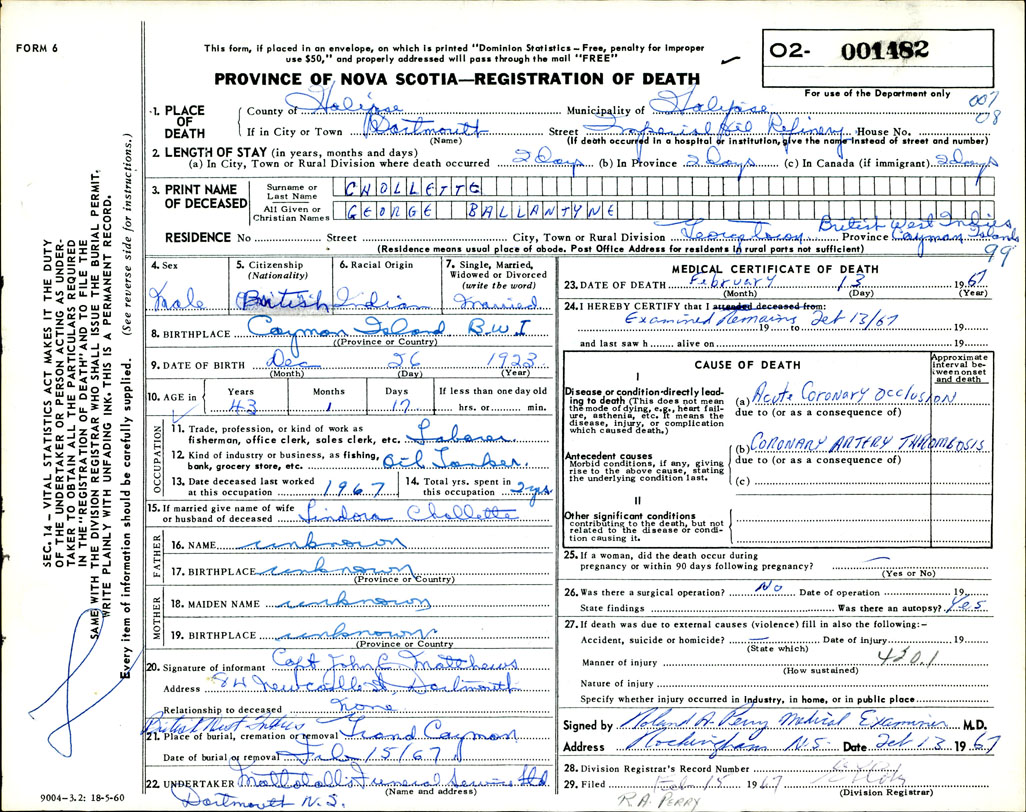 FORM 6
This form, if placed in an envelope, on which is printed "Dominion Statistics – Free, penalty for improper
use $50," and properly addressed will pass through the mail "FREE"
PROVINCE OF NOVA SCOTIA—REGISTRATION OF DEATH
O2- 001482
For use of the Department only
007
08
1. PLACE OF DEATH
County of Halifax Municipality of Halifax
If in City or Town Dartmouth Street Imperial Oil Refinery House No.
(Name) (If death occurred in a hospital or institution, give the name instead of street and number)
2. LENGTH OF STAY (in years, months and days)
(a) In City, Town or Rural Division where death occurred 2 Days (b) In Province 2 Days (c) In Canada (if immigrant) 2 Days
3. PRINT NAME OF DECEASED
Surname or Last Name CHOLLETTE
All Given or Christian Names GEORGE BALLANTYNE
British West Indies
RESIDENCE No Street City, Town or Rural Division Georgetown Province Cayman Islands
(Residence means usual place of abode. Post Office Address for residents in rural parts not sufficient)
99
4. Sex
Male
5. Citizenship (Nationality)
British
6. Racial Origin
Indian
7. Single, Married, Widowed or Divorced (write the word)
Married
8. BIRTHPLACE Cayman Island B.W.I
(Province or Country)
9. DATE OF BIRTH Dec 26 1923
(Month) (Day) (Year)
10. AGE in Years Months Days If less than one day old
43 1 17 hrs. or min.
OCCUPATION
11. Trade, profession, or kind of work as
fisherman, office clerk, sales clerk, etc. Laborer
12. Kind of industry or business, as fishing,
bank, grocery store, etc. Oil Tanker
13. Date deceased last worked at this occupation 1967
14. Total yrs. spent in this occupation 2 yrs
15. If married give name of wife
or husband of deceased Lindora Chollette
FATHER
16. NAME unknown
17. BIRTHPLACE unknown
(Province or Country)
MOTHER
18. MAIDEN NAME unknown
19. BIRTHPLACE unknown
(Province or Country)
20. Signature of informant Capt John E Matthews
Address 84 Newcastle St, Dartmouth
Relationship to deceased None
British West Indies
21. Place of burial, cremation or removal Grand Cayman
Date of burial or removal Feb 15/67
22. UNDERTAKER Funeral Service Ltd
(Name and address)
Dartmouth N.S.
9004–3.2: 18-5-60
MEDICAL CERTIFICATE OF DEATH
23. DATE OF DEATH February 13 1967
(Month) (Day) (Year)
24. I HEREBY CERTIFY that I attended deceased from:
Examined Remains 19 to Feb 13/67 19
and last saw h alive on 19
CAUSE OF DEATH
Approximate interval between onset and death
I
Disease or condition directly leading to death (This does not mean the mode of dying, e.g., heart failure, asthenia, etc. It means the disease, injury, or complication which caused death.)
(a) Acute Coronary Occlusion
due to (or as a consequence of)
Antecedent causes
Morbid conditions, if any, giving rise to the above cause, stating the underlying condition last.
(b) CORONARY ARTERY THROMBOSIS
due to (or as a consequence of)
(c)
II
Other significant conditions
contributing to the death, but not related to the disease or condition causing it.
25. If a woman, did the death occur during
pregnancy or within 90 days following pregnancy? —
(Yes or No)
26. Was there a surgical operation? No Date of operation 19
State findings Was there an autopsy? Yes
27. If death was due to external causes (violence) fill in also the following:–
Accident, suicide or homicide? — Date of injury 19
(State which)
Manner of injury 420.1
(How sustained)
Nature of injury
Specify whether injury occurred in industry, in home, or in public place
Signed by Roland A Perry Medical Examiner M.D.
Address Rockingham N.S. Date Feb 13 1967
28. Division Registrar's Record Number
29. Filed Feb 15 1967
(Division Registrar)
R.A. PERRY
SEC. 14 – VITAL STATISTICS ACT MAKES IT THE DUTY
OF THE UNDERTAKER OR PERSON ACTING AS UNDER-
TAKER TO OBTAIN ALL THE PARTICULARS REQUIRED
IN THE "REGISTRATION OF DEATH" AND TO FILE THE
SAME WITH THE DIVISION REGISTRAR WHO SHALL ISSUE THE BURIAL PERMIT.
WRITE PLAINLY WITH UNFADING INK. THIS IS A PERMANENT RECORD.
Every item of information should be carefully supplied. (See reverse side for instructions.)